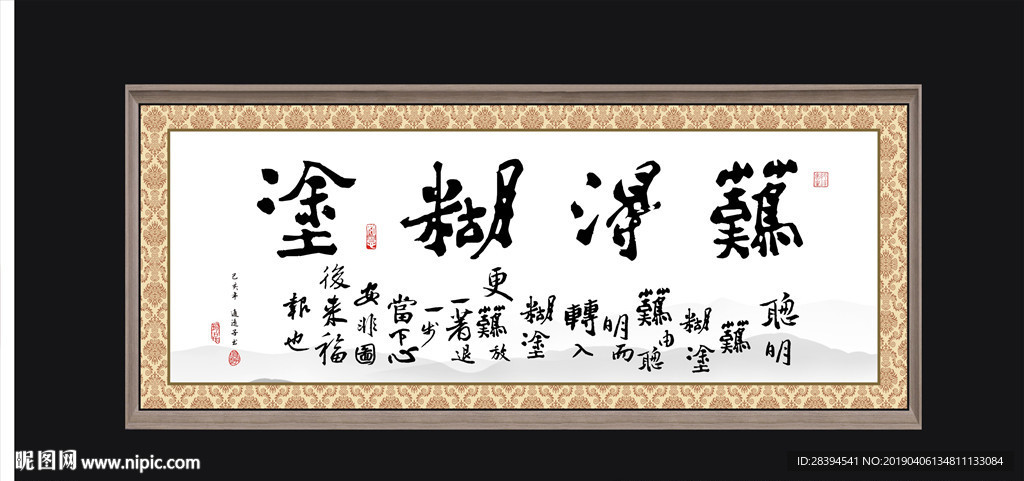 難得糊塗
聰明
難
糊塗
難由聰
明而
轉入
糊塗
更難放
一著退
一步
當下心
安非圖
後来福
報也
己亥年
昵图网 www.nipic.com
ID:28394541 NO:20190406134811133084